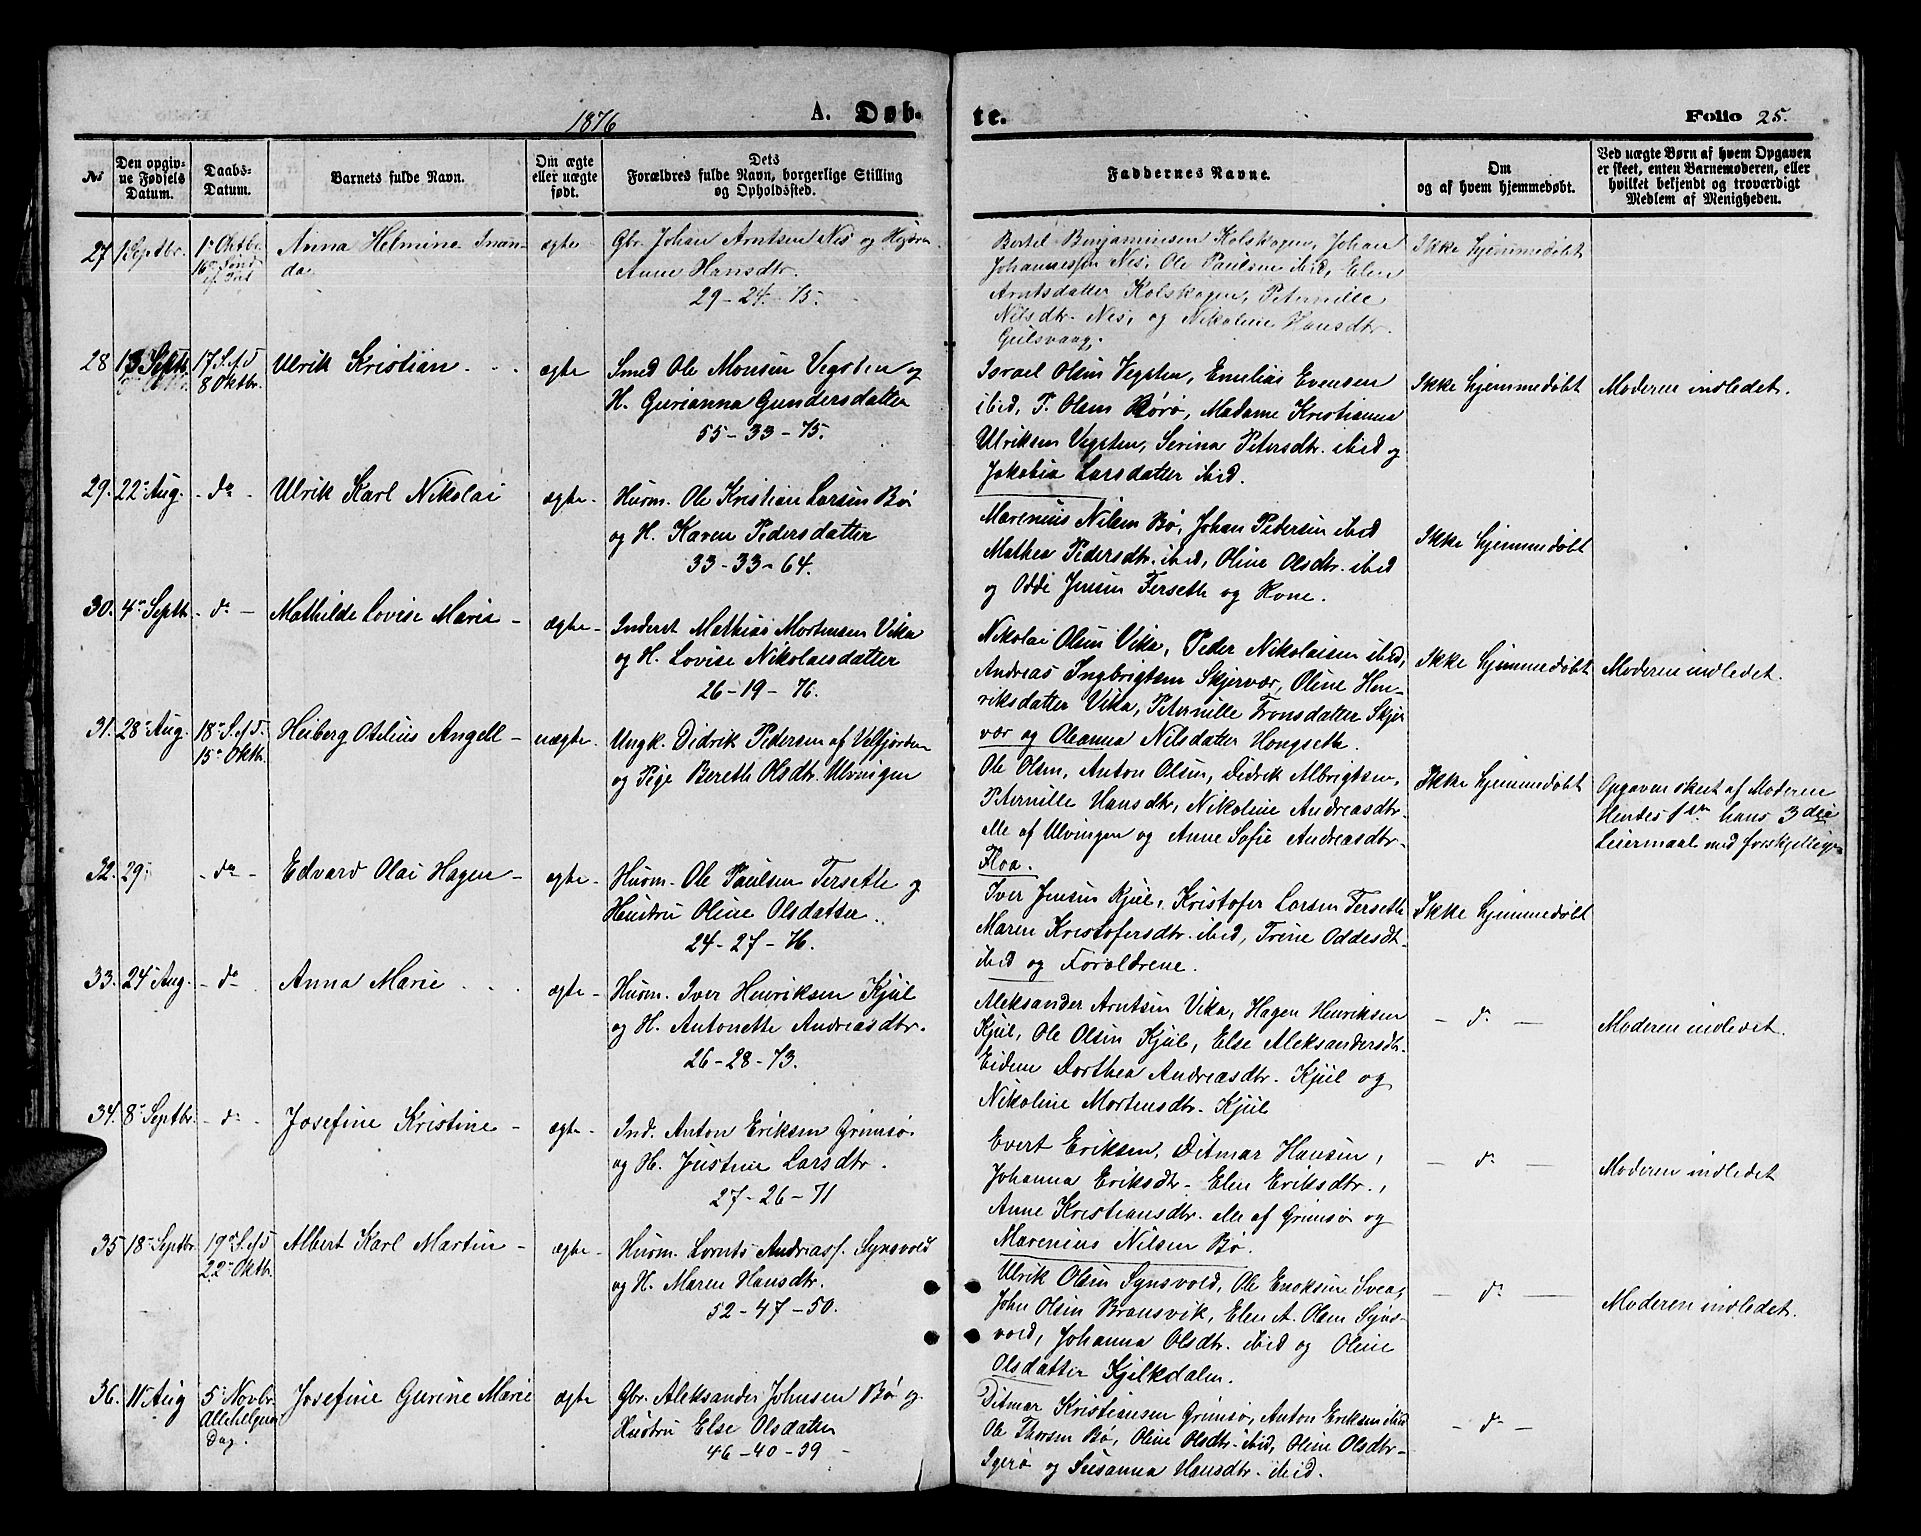 1876 A. Døb-
te. Folio 25.
No
Den opgiv-
ne Fødsels
Datum.
Daabs-
Datum.
Barnets fulde Navn.
Om ægte
eller uægte
født.
Dets
Forældres fulde Navn, borgerlige Stilling
og Opholdssted.
Faddernes Navne.
Om
og af hvem hjemmedøbt.
Ved uægte Børn af hvem Opgaven
er skeet, enten Barnemoderen, eller
hvilket bekjendt og troværdigt
Medlem af Menigheden.
27 1 Septbr. 1 Oktbr.
16 Sønd.
ef. Trs
Anna Helmine
da
ægte
Gbr. Johan Arntsen Nes og Hustru
Anne Hansdtr.
29-24-75.
Bertel Benjaminsen Kolskogen, Johan
Johannessen Nes, Ole Paulsen ibid, Elen
Arntsdatter Kolskogen, Peternille
Nilsdtr. Nes, og Nikoline Hansdtr.
Gulsvaag.
Ikke hjemmedøbt
28 13 Septb. 17 S.e.T.
8 Oktbr.
Ulrik Kristian
ægte
Smed Ole Monsen Vegsten og
H. Gurianna Gundersdatter
55-33-75.
Israel Olsen Vegsten, Emilius Evensen
ibid, P. Olsen Rørø, Madame Kristianna
Ulriksen Vegsten, Serina Petersdtr. ibid og
Jakobia Larsdatter ibid.
Ikke hjemmedøbt
Moderen indledet.
29. 22 Aug. - do -
Ulrik Karl Nikolai
ægte
Husm. Ole Kristian Larsen Bø
og H. Karen Pedersdatter
33-33-64.
Marenius Nilsen Bø, Johan Pedersen ibid
Mathea Pedersdtr. ibid, Oline Olsdtr. ibid
og Odde Jensen Tersethe og Kone.
Ikke hjemmedøbt
30. 4 Septb. - do -
Mathilde Lovise Marie
ægte
Inderst Mathias Mortensen Vika
og H. Lovise Nikolaisdatter
26-19-76.
Nikolai Olsen Vika, Peder Nikolaisen ibid,
Andreas Ingbrigtsen Skjervær, Oline Hen-
riksdatter Vika, Peternille Tronsdatter Skjer
vær og Oleanna Nilsdatter Hongsethe.
Ikke hjemmedøbt
Moderen indledet.
31. 28 Aug. 18 S.e.T.
15 Oktbr.
Heiberg Otelius Angell
uægte
Ungk. Didrik Pedersen af Velfjorden
og Pige Berethe Olsdtr. Ulvingen
Ole Olsen, Anton Olsen, Didrik Albrigtsen,
Peternille Hansdtr, Nikoline Andreasdtr.
alle af Ulvingen og Anne Sofie Andreasdtr.
Floa.
Ikke hjemmedøbt
Opgaven skeet af Moderen
Hendes 1ste hans 3die
Leiermaal med forskjellige
32. 29. - do -
Edvard Olai Hagen
ægte
Husm. Ole Paulsen Tersethe og
Hustru Oline Olsdatter.
24-27-76.
Iver Jensen Kjul, Kristofer Larsen Tersethe
Maren Kristofersdtr. ibid, Trine Oddesdt.
ibid og Forældrene.
Ikke hjemmedøbt
33. 24 Aug. - do -
Anna Marie
ægte
Husm. Iver Henriksen Kjul
og H. Antonette Andreasdtr.
26-28-73.
Aleksander Arntsen Vika, Hagen Henriksen
Kjul, Ole Olsen Kjul, Else Aleksandersdt.
Eidem Dorthea Andreasdtr. Kjul og
Nikoline Mortensdtr. Kjul
- do -
Moderen indledet.
34. 8 Septbr. - do -
Josefine Kristine
ægte
Ind. Anton Eriksen Grimsø.
og H. Justine Larsdtr.
27-26-71
Evert Eriksen, Ditmar Hansen,
Johanna Eriksdtr. Elen Eriksdtr.,
Anne Kristiansdtr. alle af Grimsø og
Marenius Nilsen Bø.
- do -
Moderen indledet
35 18 Septbr. 19 S.e.T.
22 Oktb.
Albert Karl Martin
ægte
Husm. Lornts Andreass. Synsvold
og H. Maren Hansdtr.
52-47-50.
Ulrik Olsen Synsvold, Ole Enoksen Svea,
John Olsen Bransvik, Elen A. Olsen Syns-
vold, Johanna Olsdtr. ibid og Oline
Olsdatter Kjilkdalen.
- do -
Moderen indledet.
36. 11 Aug 5 Novbr.
Allehelgens
Dag.
Josefine Gurine Marie
ægte
Gbr. Aleksander Johnsen Bø og
Hustru Else Olsdatter
46-40-39
Ditmar Kristiansen Grimsø, Anton Eriksen ibid
Ole Thorsen Bø, Oline Olsdtr. ibid, Oline Olsdtr.
Igerø og Susanna Hansdtr. ibid.
- do -